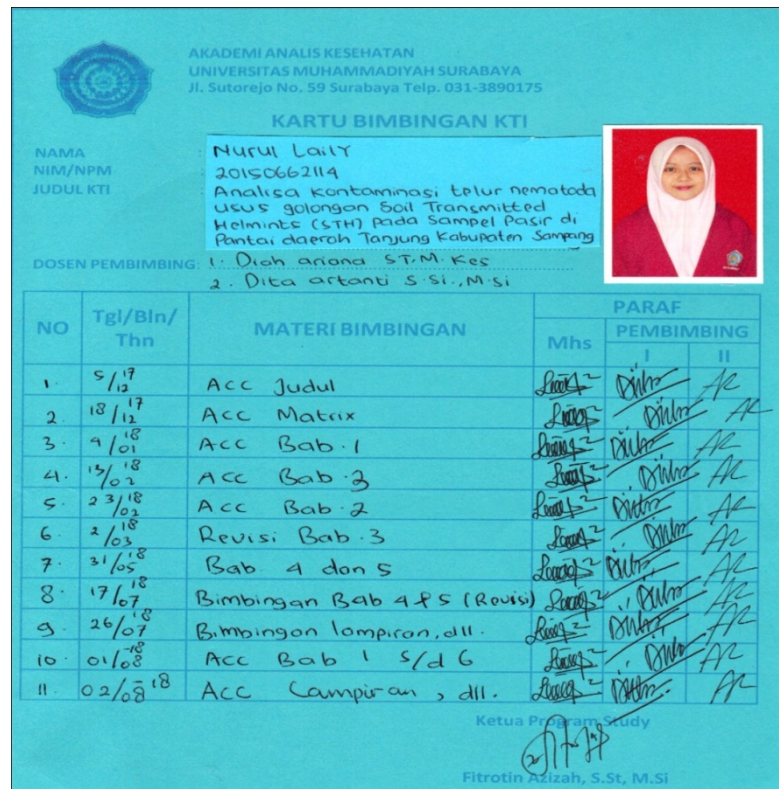 AKADEMI ANALIS KESEHATAN
UNIVERSITAS MUHAMMADIYAH SURABAYA
Jl. Sutorejo No. 59 Surabaya Telp. 031-3890175
KARTU BIMBINGAN KTI
NAMA : Nurul Laily
NIM/NPM 20150662114
JUDUL KTI Analisa kontaminasi telur nematoda
usus golongan Soil Transmitted
Helmints (STH) pada Sampel Pasir di
Pantai daerah Tanjung Kabupaten Sampang
DOSEN PEMBIMBING: 1. Diah ariana ST,M.Kes
2. Dita artanti S.Si.,M.Si
NO Tgl/Bln/Thn MATERI BIMBINGAN PARAF
Mhs PEMBIMBING
I II
1. 5/12 '17 Acc Judul
2. 18/12 '17 Acc Matrix
3. 9/01 '18 Acc Bab.1
4. 13/02 '18 Acc Bab.3
5. 23/02 '18 Acc Bab.2
6. 2/03 '18 Revisi Bab.3
7. 31/05 '18 Bab 4 dan 5
8. 17/07 '18 Bimbingan Bab 4 & 5 (Revisi)
9. 26/07 '18 Bimbingan lampiran, dll.
10. 01/08 '18 Acc Bab 1 s/d 6
11. 02/08 '18 Acc Lampiran, dll.
Ketua Program Study
Fitrotin Azizah, S.St, M.Si